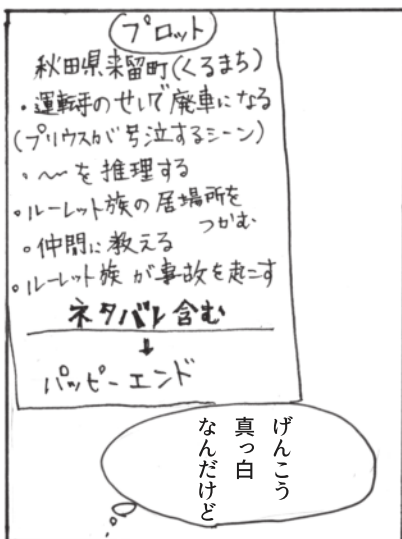 プロット
秋田県来留町(くるまち)
・運転手のせいで廃車になる
(プリウスが号泣するシーン)
・〜を推理する
・ルーレット族の居場所を
つかむ
・仲間に教える
・ルーレット族が事故を起こす
ネタバレ含む
↓
パッピーエンド
げんこう
真っ白
なんだけど